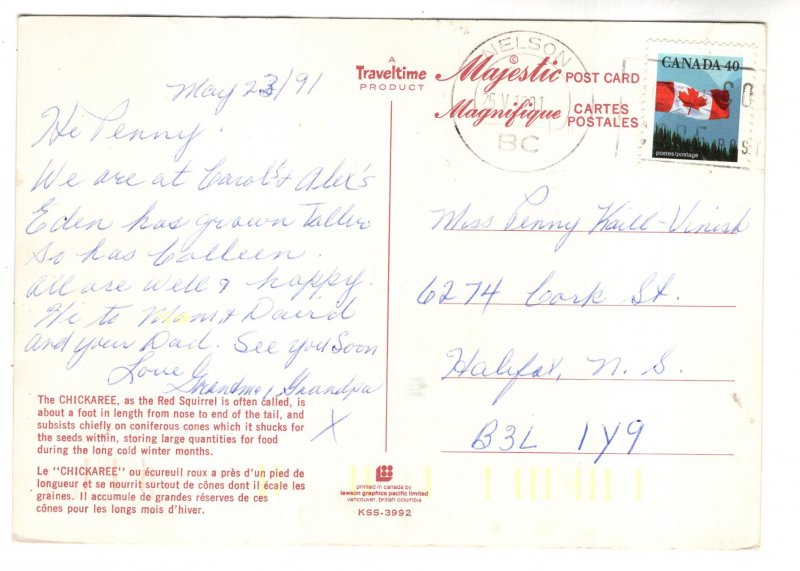 May 23/91
Hi Penny.
We are at Carol's & Alex's
Eden has grown Taller
So has Colleen.
All are well & happy.
Hi to Mom & David
and your Dad. See you Soon
Love Grandma, Grandpa
X
The CHICKAREE, as the Red Squirrel is often called, is
about a foot in length from nose to end of the tail, and
subsists chiefly on coniferous cones which it shucks for
the seeds within, storing large quantities for food
during the long cold winter months.
Le "CHICKAREE" ou écureuil roux a près d'un pied de
longueur et se nourrit surtout de cônes dont il écale les
graines. Il accumule de grandes réserves de ces
cônes pour les longs mois d'hiver.
A
Traveltime
PRODUCT
©
Majestic POST CARD
Magnifique CARTES
POSTALES
NELSON
25 V 1991
BC
CANADA 40
postes/postage
Miss Penny Kaill-Vinish
6274 Cork St.
Halifax, N. S.
B3L 1Y9
printed in canada by
lawson graphics pacific limited
vancouver, british columbia
KSS-3992